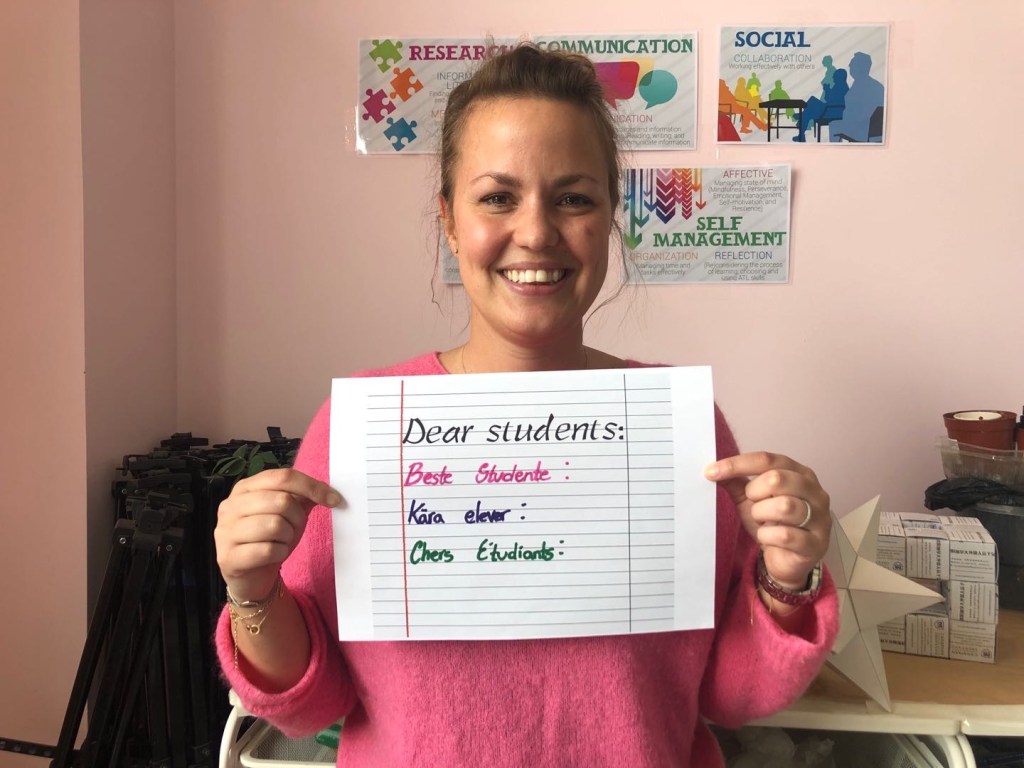 RESEARCH
COMMUNICATION
SOCIAL
COLLABORATION
Working effectively with others
AFFECTIVE
Managing state of mind
(Mindfulness, Perseverance,
Emotional Management,
Self-motivation, and
Resilience)
SELF
MANAGEMENT
ORGANIZATION
Managing time and
tasks effectively
REFLECTION
(Re)considering the process
of learning; choosing and
using ATL skills
Dear students:
Beste Studente :
Kära elever :
Chers Étudiants: